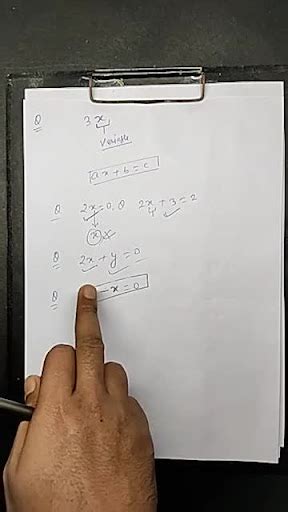 Q 3x
Variable
ax + b = c
Q 2x = 0, Q 2x + 3 = 2
x
Q 2x + y = 0
Q - x = 0